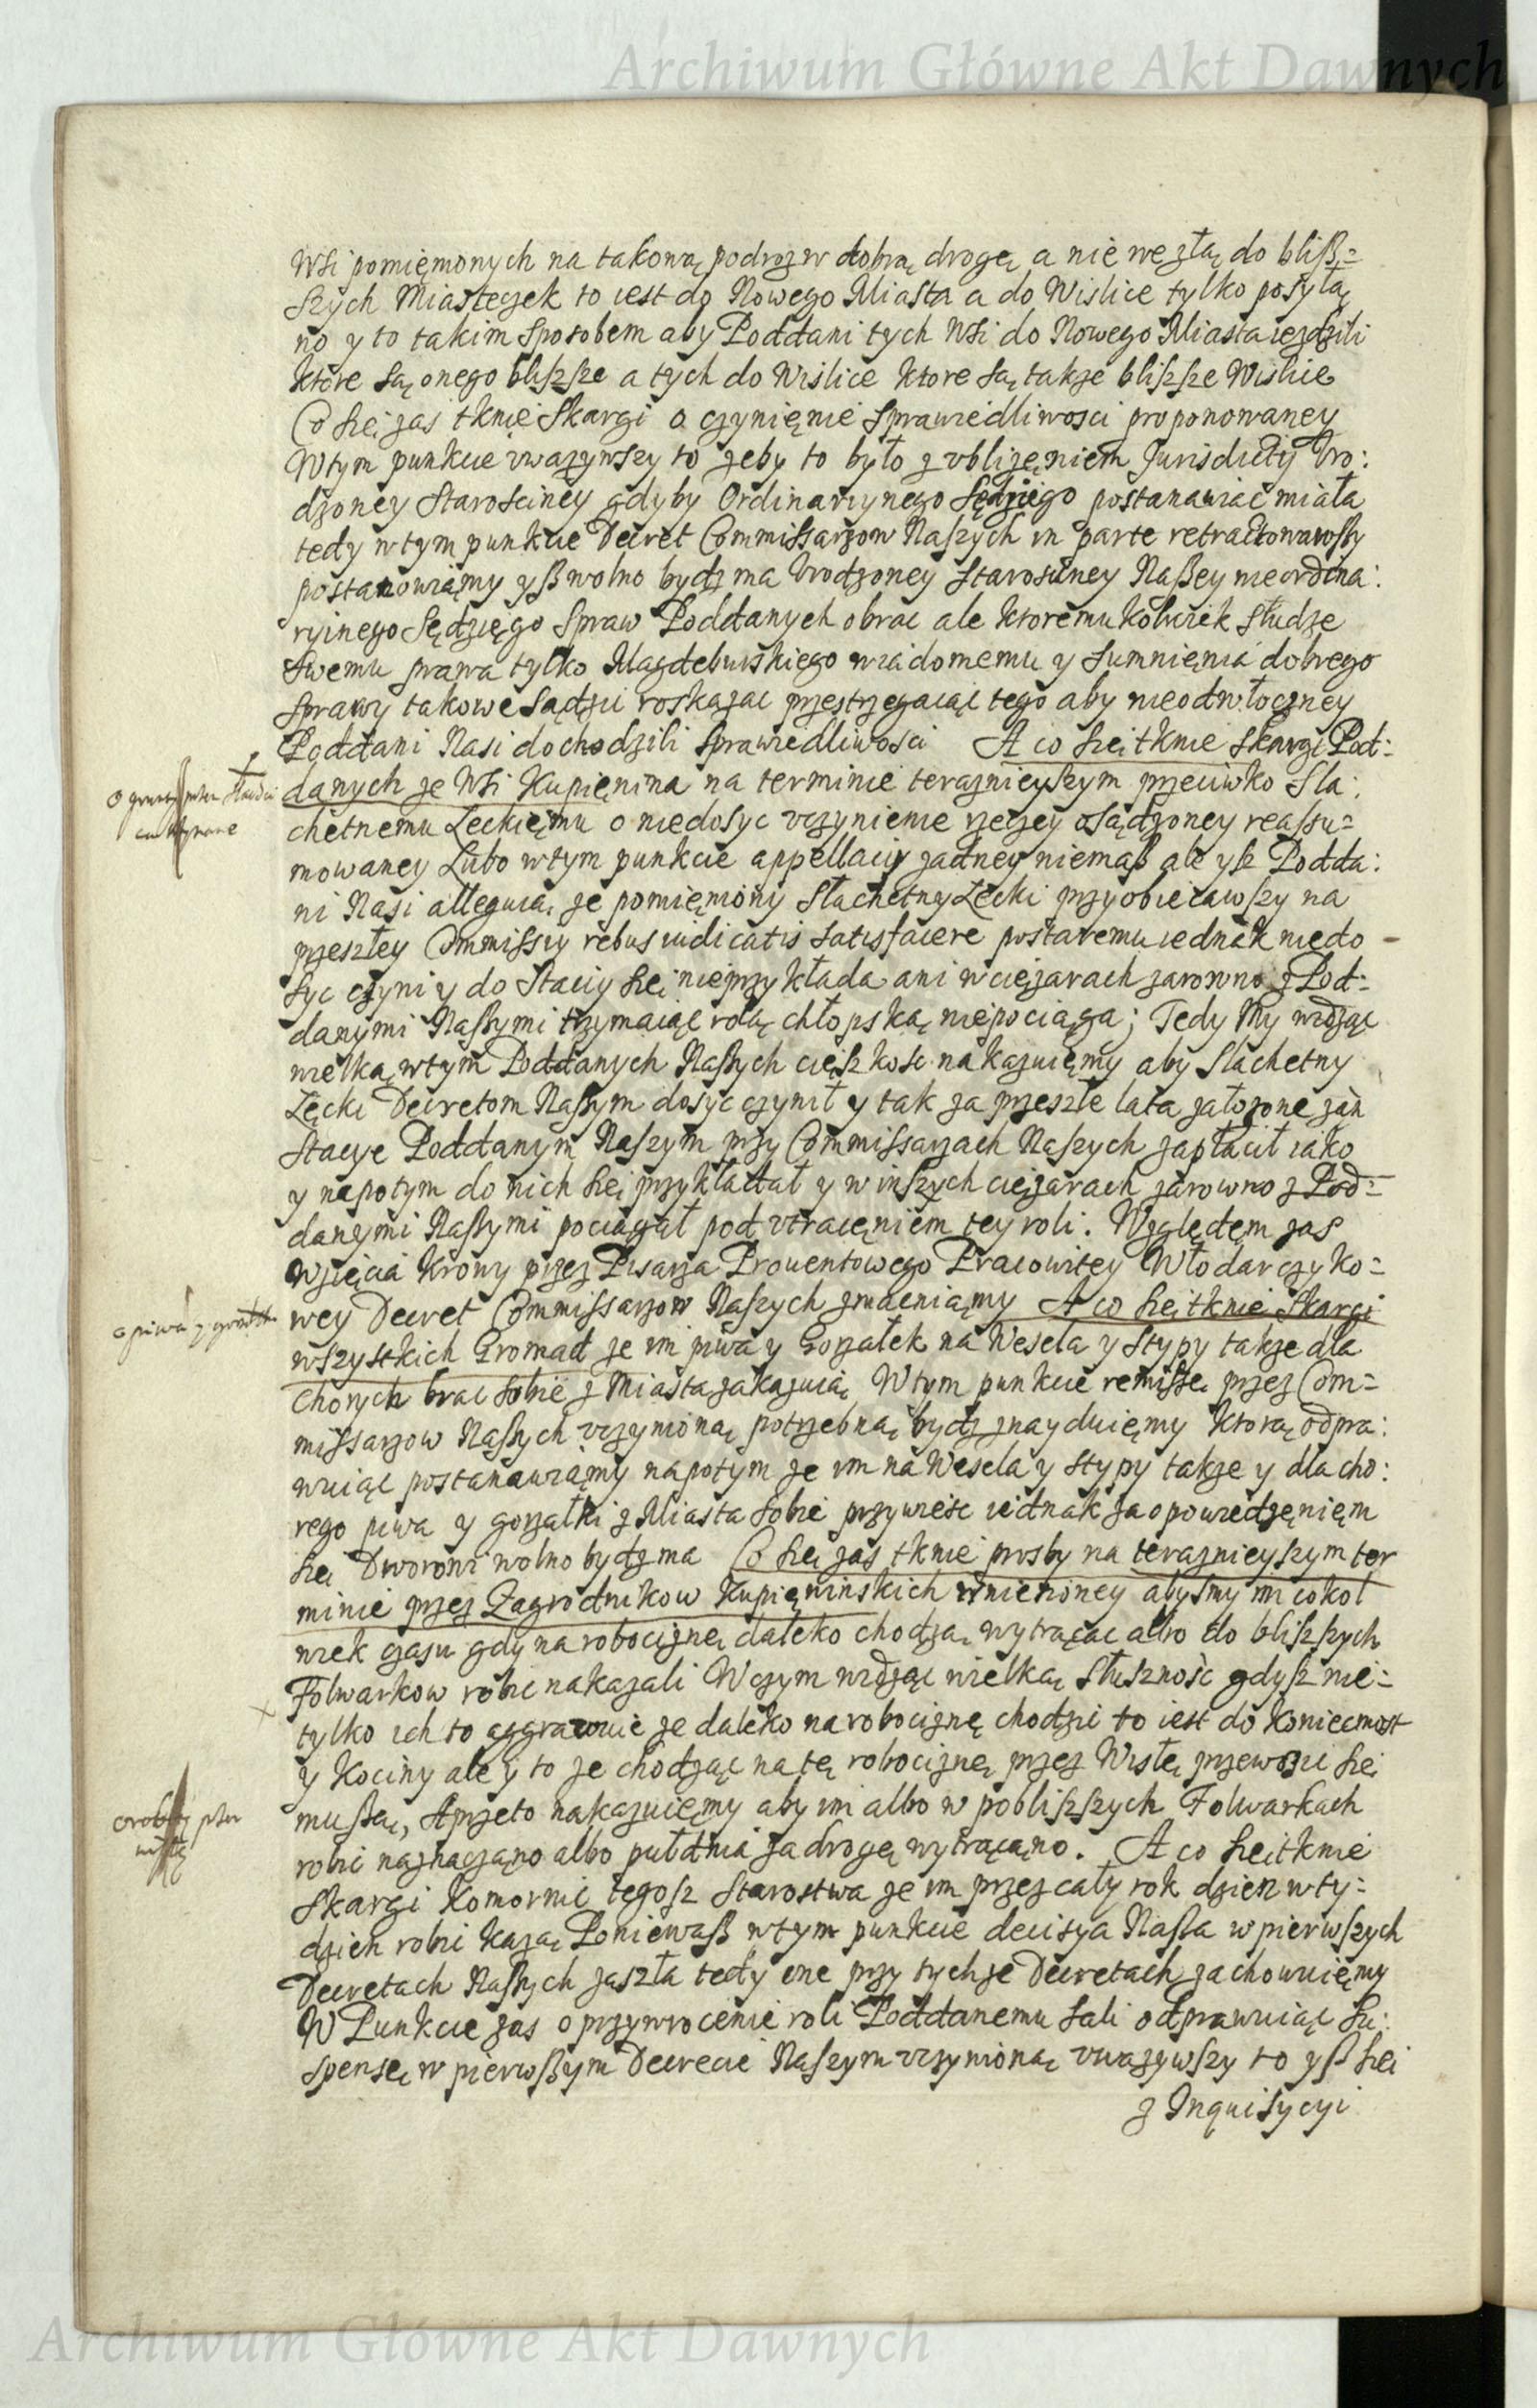 Archiwum Główne Akt Dawnych
Wsi pomięmonych na takową podroz w dobrą drogę a nie we złą do bliß=
szych Miasteczek to iest do Nowego Miasta a do Wislice tylko posyła
no y to takim sposobem aby Poddani tych Wsi do Nowego Miasta iezdzili
ktore są onego bliższe a tych do Wislice ktore są także bliższe Wislice
Co się zas tknie skargi o czynięnie sprawiedliwosci proponowaney
W tym punkcie vwazywszy to zeby to było z vbliżęniem Jurisdictÿ Vro:
dzoney Starosciney gdyby Ordinaryinego Sędziego postanawiac miała
tedy w tym punkcie Decret Commissarzow Naszych in parte retractowawszy
postanowiamy yß wolno bydz ma Vrodzoney Starosciney Naßey nieordina:
ryinego Sędzięgo spraw Poddanych obrac ale ktoremukolwiek słudze
swemu prawa tylko Magdeburskiego wiadomemu y sumnięnia dobrego
sprawy takowe sądzic roskazac przestrzegaiąc tego aby nieodwłoczney
Poddani Nasi dochodzili sprawiedliwosci A co się tknie skargi Pod:
danych ze Wsi Kupięnina na terminie teraznieyszym przeciwko Sla:
chetnemu Leckięmu o niedosyc vczynienie rzeczey osądzoney reassu=
mowaney Lubo w tym punkcie appellaciy zadney niemaß ale ysz Podda:
ni Nasi alleguią ze pomięmiony Slachetny Lecki przyobiecawszy na
przeszłey Commissiy rebus iudicatis satisfacere postaremu iednak niedo
syc czyni y do Staciy się nieprzykłada ani w ciężarach zarowno z Pod:
danymi Naszymi trzymaiąc rolą chłopską niepociąga; Tedy My widząc
wielką w tym Poddanych Naszych cięszkosc nakazuięmy aby Slachetny
Lęcki Decretom Naszym dosyc czynił y tak za przeszłe lata założone zań
Stacye Poddanym Naszym przy Commissarzach Naszych zapłacił iako
y napotym do nich się przykładał y w inszych ciężarach zarowno z Pod=
danymi Naszymi pociągał pod vtracęniem tey roli. Względęm zas
Wzięcia Krowy przez Pisarza Prouentowego Pracowitey Włodarczyko=
wey Decret Commissarzow Naszych zmacniamy A co się tknie skargi
wszystkich Gromad ze im piwa y Gorzałek na Wesela y Stypy także dla
Chorych brac sobie z Miasta zakazuią W tym punkcie remissę przez Com=
missarzow Naszych vczynioną potrzebną bydz znayduięmy ktorą odpra:
wuiąc postanawiamy napotym ze im na Wesela y Stypy także y dla cho:
rego piwa y gorzałki z Miasta sobie przywiesc iednak za opowiedzęnięm
się Dworowi wolno bydz ma Co się zas tknie prosby na teraznieyszym ter
minie przez Zagrodnikow Kupięninskich wniesioney abysmy im cokol
wiek czasu gdy na robociznę daleko chodzą wytrącac albo do bliszszych
Folwarkow robic nakazali W czym widząc wielką słusznosc gdysz nie=
tylko ich to aggrawuie ze daleko na robociznę chodzic to iest do Koniecmost
y Kociny ale y to ze chodząc na tę robociznę przez Wisłę przewozic się
muszą, A przeto nakazuięmy aby im albo w pobliszszych Folwarkach
robic naznaczano albo pułdnia za drogę wytrącano. A co się tknie
skargi Komornic tegosz Starostwa ze im przez cały rok dzien w ty=
dzien robic każą Poniewaß w tym punkcie decisya Nasza w pierwszych
Decretach Naszych zaszła tedy one przy tychże Decretach zachowuięmy
W Punkcie zas o przywrocenie roli Poddanemu Sali odprawuiąc Su:
spensę w pierwszym Decrecie Naszym vczynioną vwazywszy to yß się
z Inquisycyi
o piwa y
Archiwum Główne Akt Dawnych